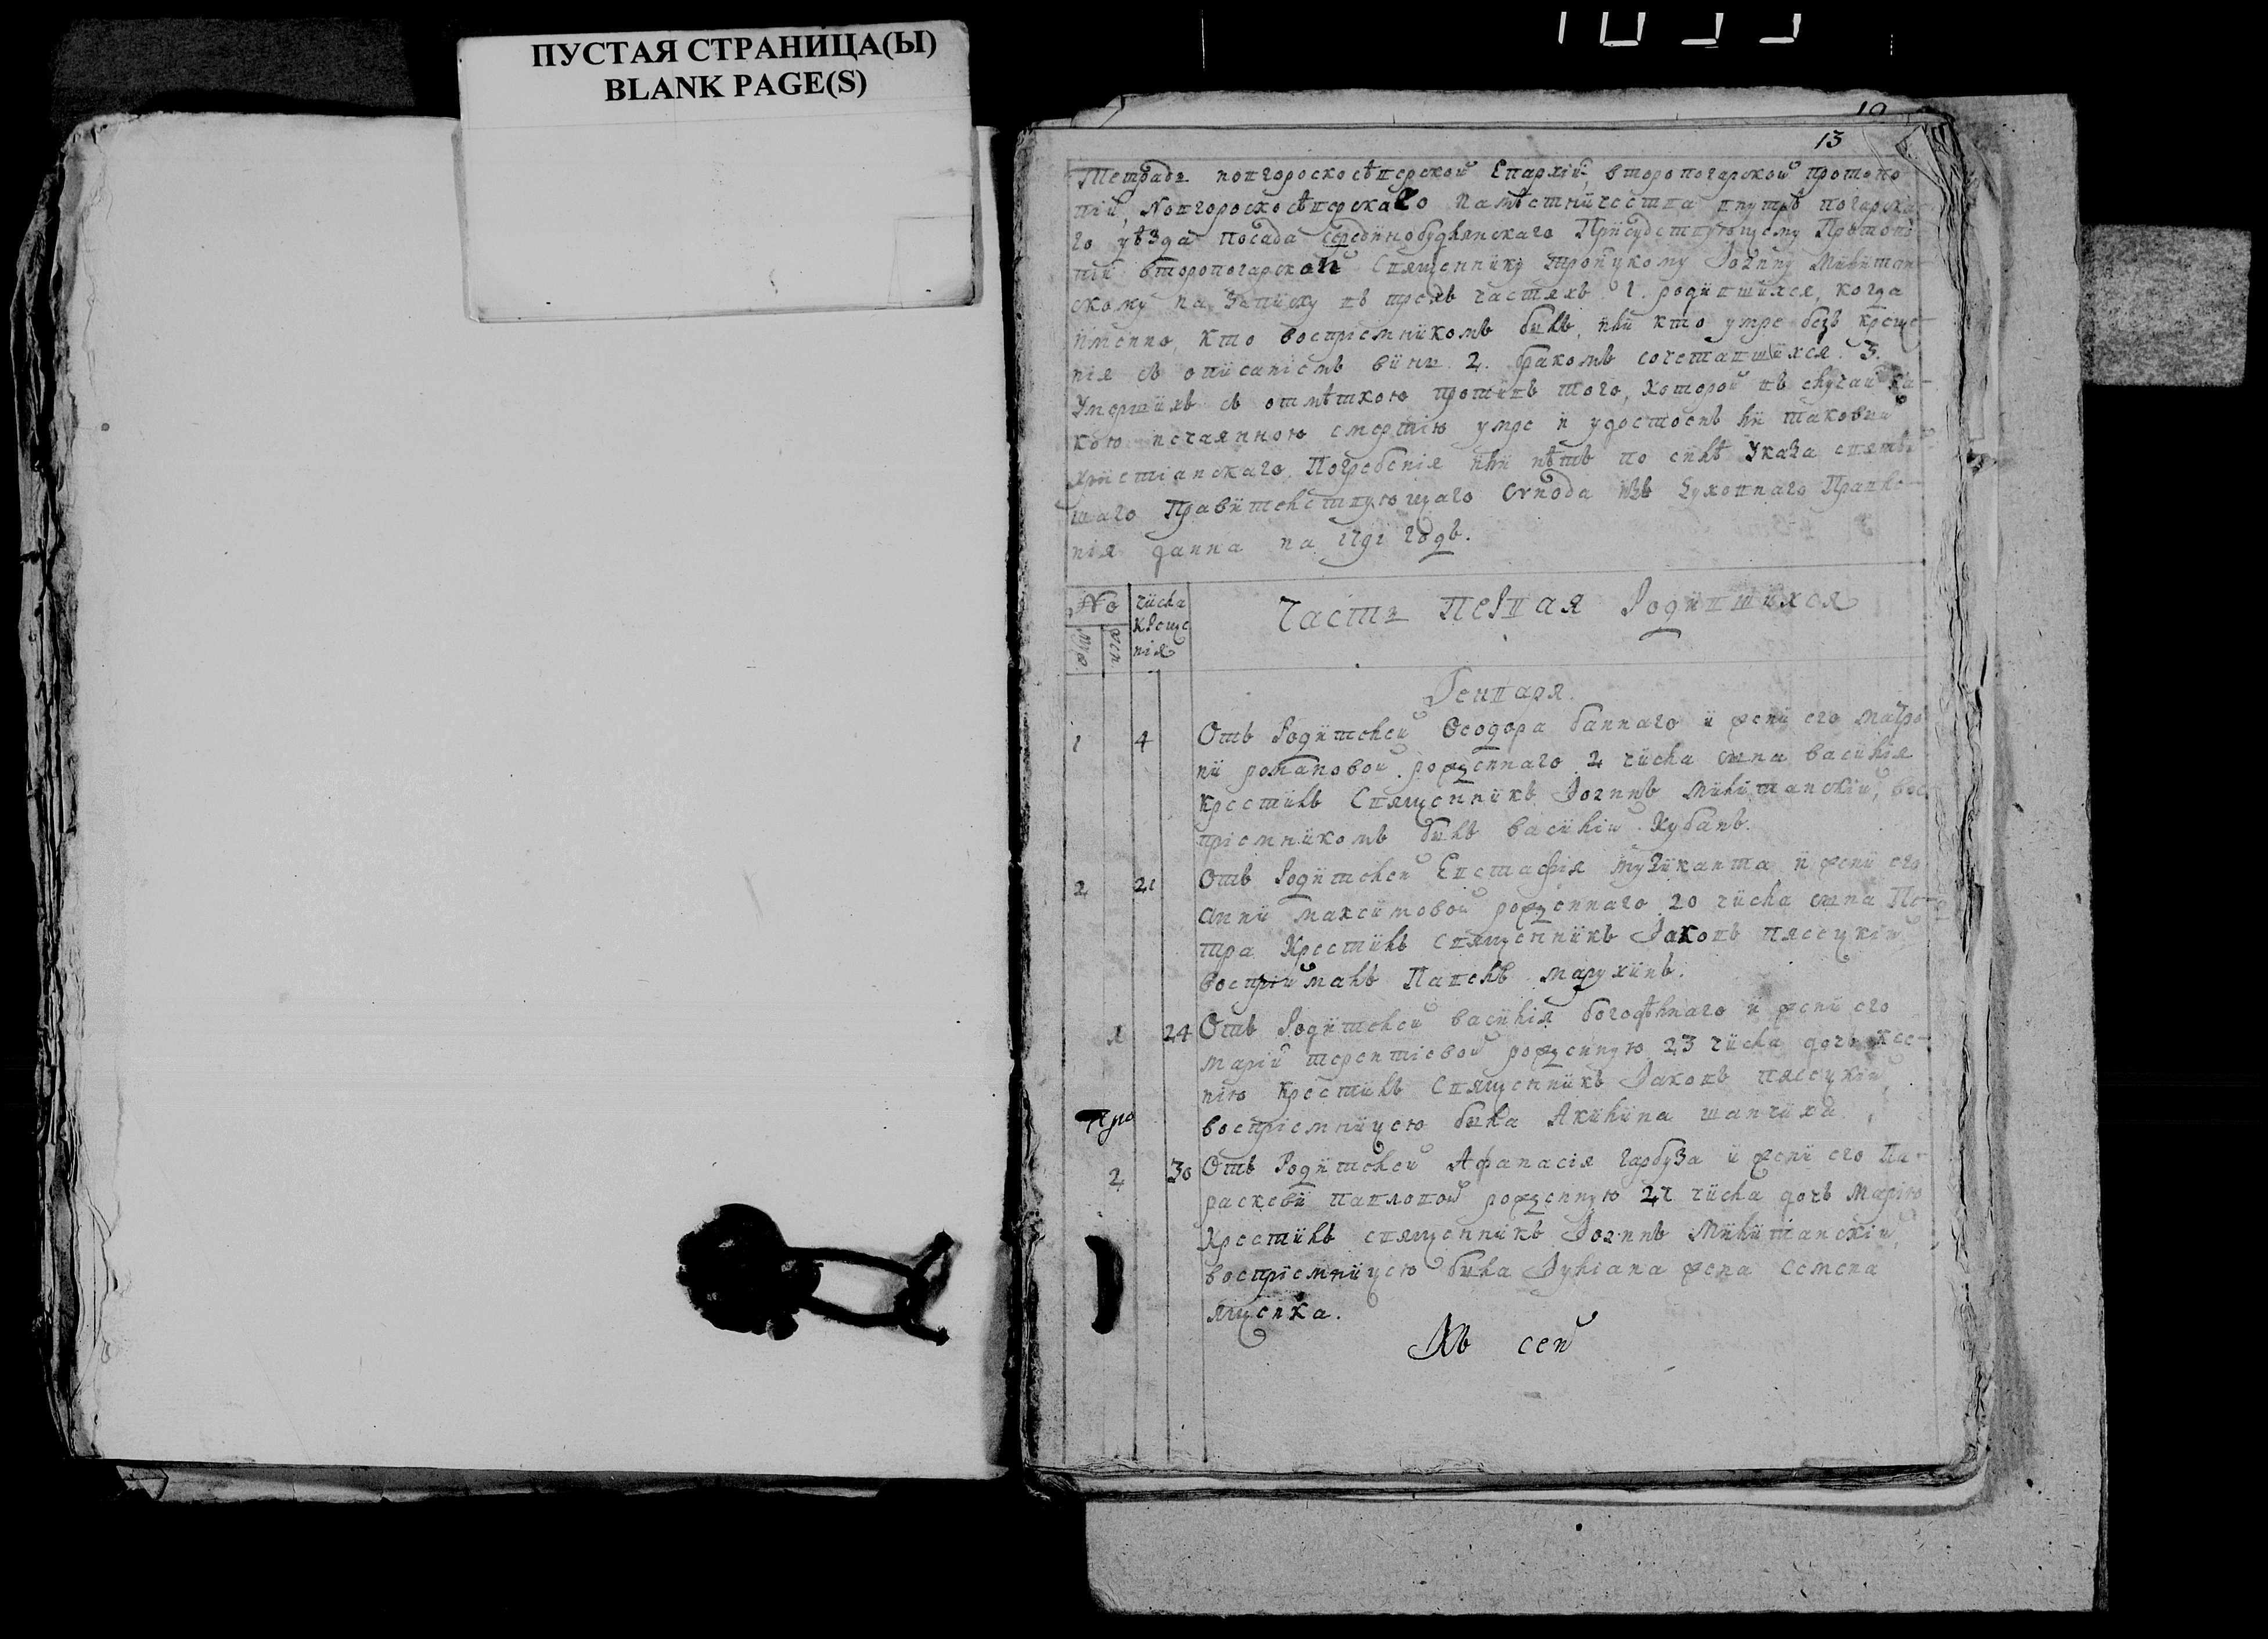 ПУСТАЯ СТРАНИЦА(Ы)
BLANK PAGE(S)
13
Тетрадь новгородскосѣверской Епархіи, второпогарской протопо
піи, Новгородскосѣверскаго намѣстничества внутрь погарска
го уѣзда посада серединобудянскаго Присудствующему Протопо
піи второпогарской Священнику троицкому Іоанну Милитан
скому на записку въ трехъ частяхъ 1. родившихся, когда
имянно, кто восприемникомъ былъ, или кто умре безъ креще
нія съ описаніемъ вины 2. бракомъ сочетавшихся. 3.
Умершихъ съ отмѣткою противъ того, которой въ случаи ка-
кою нечаянною смертію умре и удостоенъ ли таковый
христіанскаго Погребенія или нѣтъ по силѣ Указа святѣй
шаго Правительствующаго Сѵнода изъ Духовнаго Правле-
нія данна на 1791 годъ.
No
числа
креще
нія
муж
жен
Часть первая Родившихся
Генваря.
1 4 Отъ Родителей Феодора баннаго и жены его Матро
ны романовой рожденнаго 2 числа сына василія
крестилъ Священникъ Іоаннъ Милитанскій, вос
пріемникомъ былъ василій Кубанъ.
2 21 Отъ Родителей Евстафія музиканта и жены его
Анны максимовой рожденнаго 20 числа сына Пе-
тра Крестилъ Священникъ Іаковъ пясецкій
воспріималъ Павелъ Марухинъ.
1 24 Отъ Родителей василія богодѣлнаго и жены его
Маріи терентіевой рожденную 23 числа дочь ксе-
нію Крестилъ Священникъ Іаковъ пясецкій
воспріемницею была Акилина шапчиха.
Про
2 30 Отъ Родителей Афанасія Гарбуза и жены его Па-
раскевы павловой рожденную 27 числа дочь Марію
Крестилъ священникъ Іоаннъ Милитанскій,
воспріемницею была Іуліана жена Семена
ященка.
Къ сей